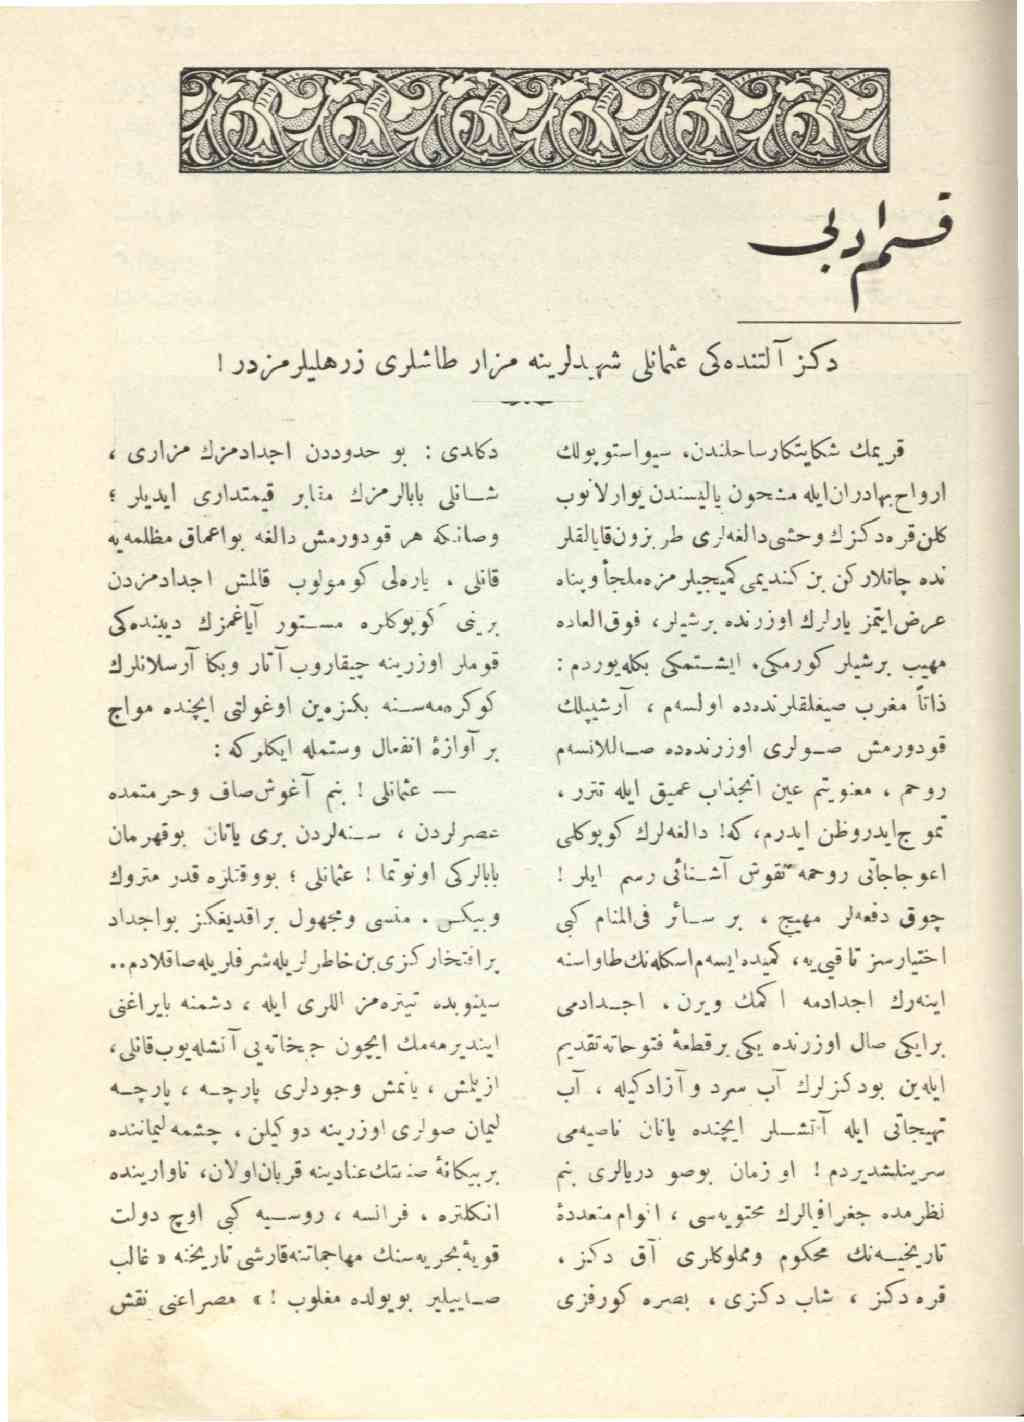 قسم ادبی
دكز آلتنده‌كی عثمانلی شهیدلرینه مزار طاشلری زرهلیلرمزدر !
قریمك شكایتكار ساحلندن، سیواستوپولك
ارواح بهادران ایله مشحون یالیسندن یوارلانوب
كلن قره دكزك وحشی دالغه‌لری طربزون قایالقلر
نده چاتلاركن بن كندیمی كمیجیلرمزه ملجأ و پناه
عرض ایتمز یارلرك اوزرنده برشیلر، فوق العاده
مهیب برشیلر كورمكی، ایشتمكی بكله‌یوردم :
ذاتاً مغرب صیغلقلرنده‌ده اولسه‌م ، آرشیپلك
قودورمش صولری اوزرنده‌ده صاللانسه‌م
روحم ، معنویتم عین انجذاب عمیق ایله تتررر ،
تموج ایدر و ظن ایدرم، كه ! دالغه‌لرك كوپوكلی
اعوجاجاتی روحمه نقوش آشنائی رسم ایلر !
چوق دفعه‌لر مهیج ، بر سائر فی المنام كبی
اختیارسز تا قیی‌یه، كمیده ایسه‌م اسكله‌نك طاواسنه
اینه‌رك اجدادمه اكمك ویرن، اجدادمی
برایكی صال اوزرنده یكی برقطعهٔ فتوحاته تقدیم
ایله‌ین بودكزلرك آب سرد و آزادكیله ، آب
تهیجاتی ایله آتشلر ایچنده یانان ناصیه‌می
سرینلشدیردم ! او زمان بوصو دریالری بنم
نظرمده جغرافیالرك محتویه‌سی ، اقوام متعددهٔ
تاریخیه‌نك محكوم ومملوكلری آق دكز ،
قره دكز ، شاب دكزی ، بصره كورفزی
دكلدی : بو حدوددن اجدادمزك مزاری ،
شانلی بابالرمزك مقابر قیمتداری ایدیلر ؛
وصانكه هر قودورمش دالغه بواعماق مظلمه‌یه
قانلی ، یاره‌لی كومولوب قالمش اجدادمزدن
برینی كوپوكلره مستور آیاغمزك دیبنده‌كی
قوملر اوزرینه چیقاروب آتار وبكا آرسلانلرك
كوكره‌مه‌سنه بكزه‌ین اوغولتی ایچنده مواج
بر آوازهٔ انفعال وستمله ایكلركه :
— عثمانلی ! بنم آغوش صاف وحرمتمده
عصرلردن ، سنه‌لردن بری یاتان بوقهرمان
بابالركی اونوتما ! عثمانلی ؛ بووقتلره قدر متروك
وبیكس ، منسی ومجهول براقدیغكز بواجداد
پرافتخاركزی بن خاطرلریله شرفلریله صاقلادم..
سینوبده تیتره‌مز اللری ایله ، دشمنه بایراغنی
ایندیرمه‌مك ایچون جبخانه‌یی آتشله‌یوب قانلی،
ازیلمش ، یانمش وجودلری پارچه ، پارچه
لیمان صولری اوزرینه دوكیلن ، چشمه لیماننده
بربیكانهٔ صنعتك عنادینه قربان اولان، ناوارینده
انكلتره ، فرانسه ، روسیه كبی اوچ دولت
قویهٔ بحریه‌سنك مهاجماتنه قارشی تاریخنه « غالب
صاییلیر بو یولده مغلوب ! » مصراعنی نقش